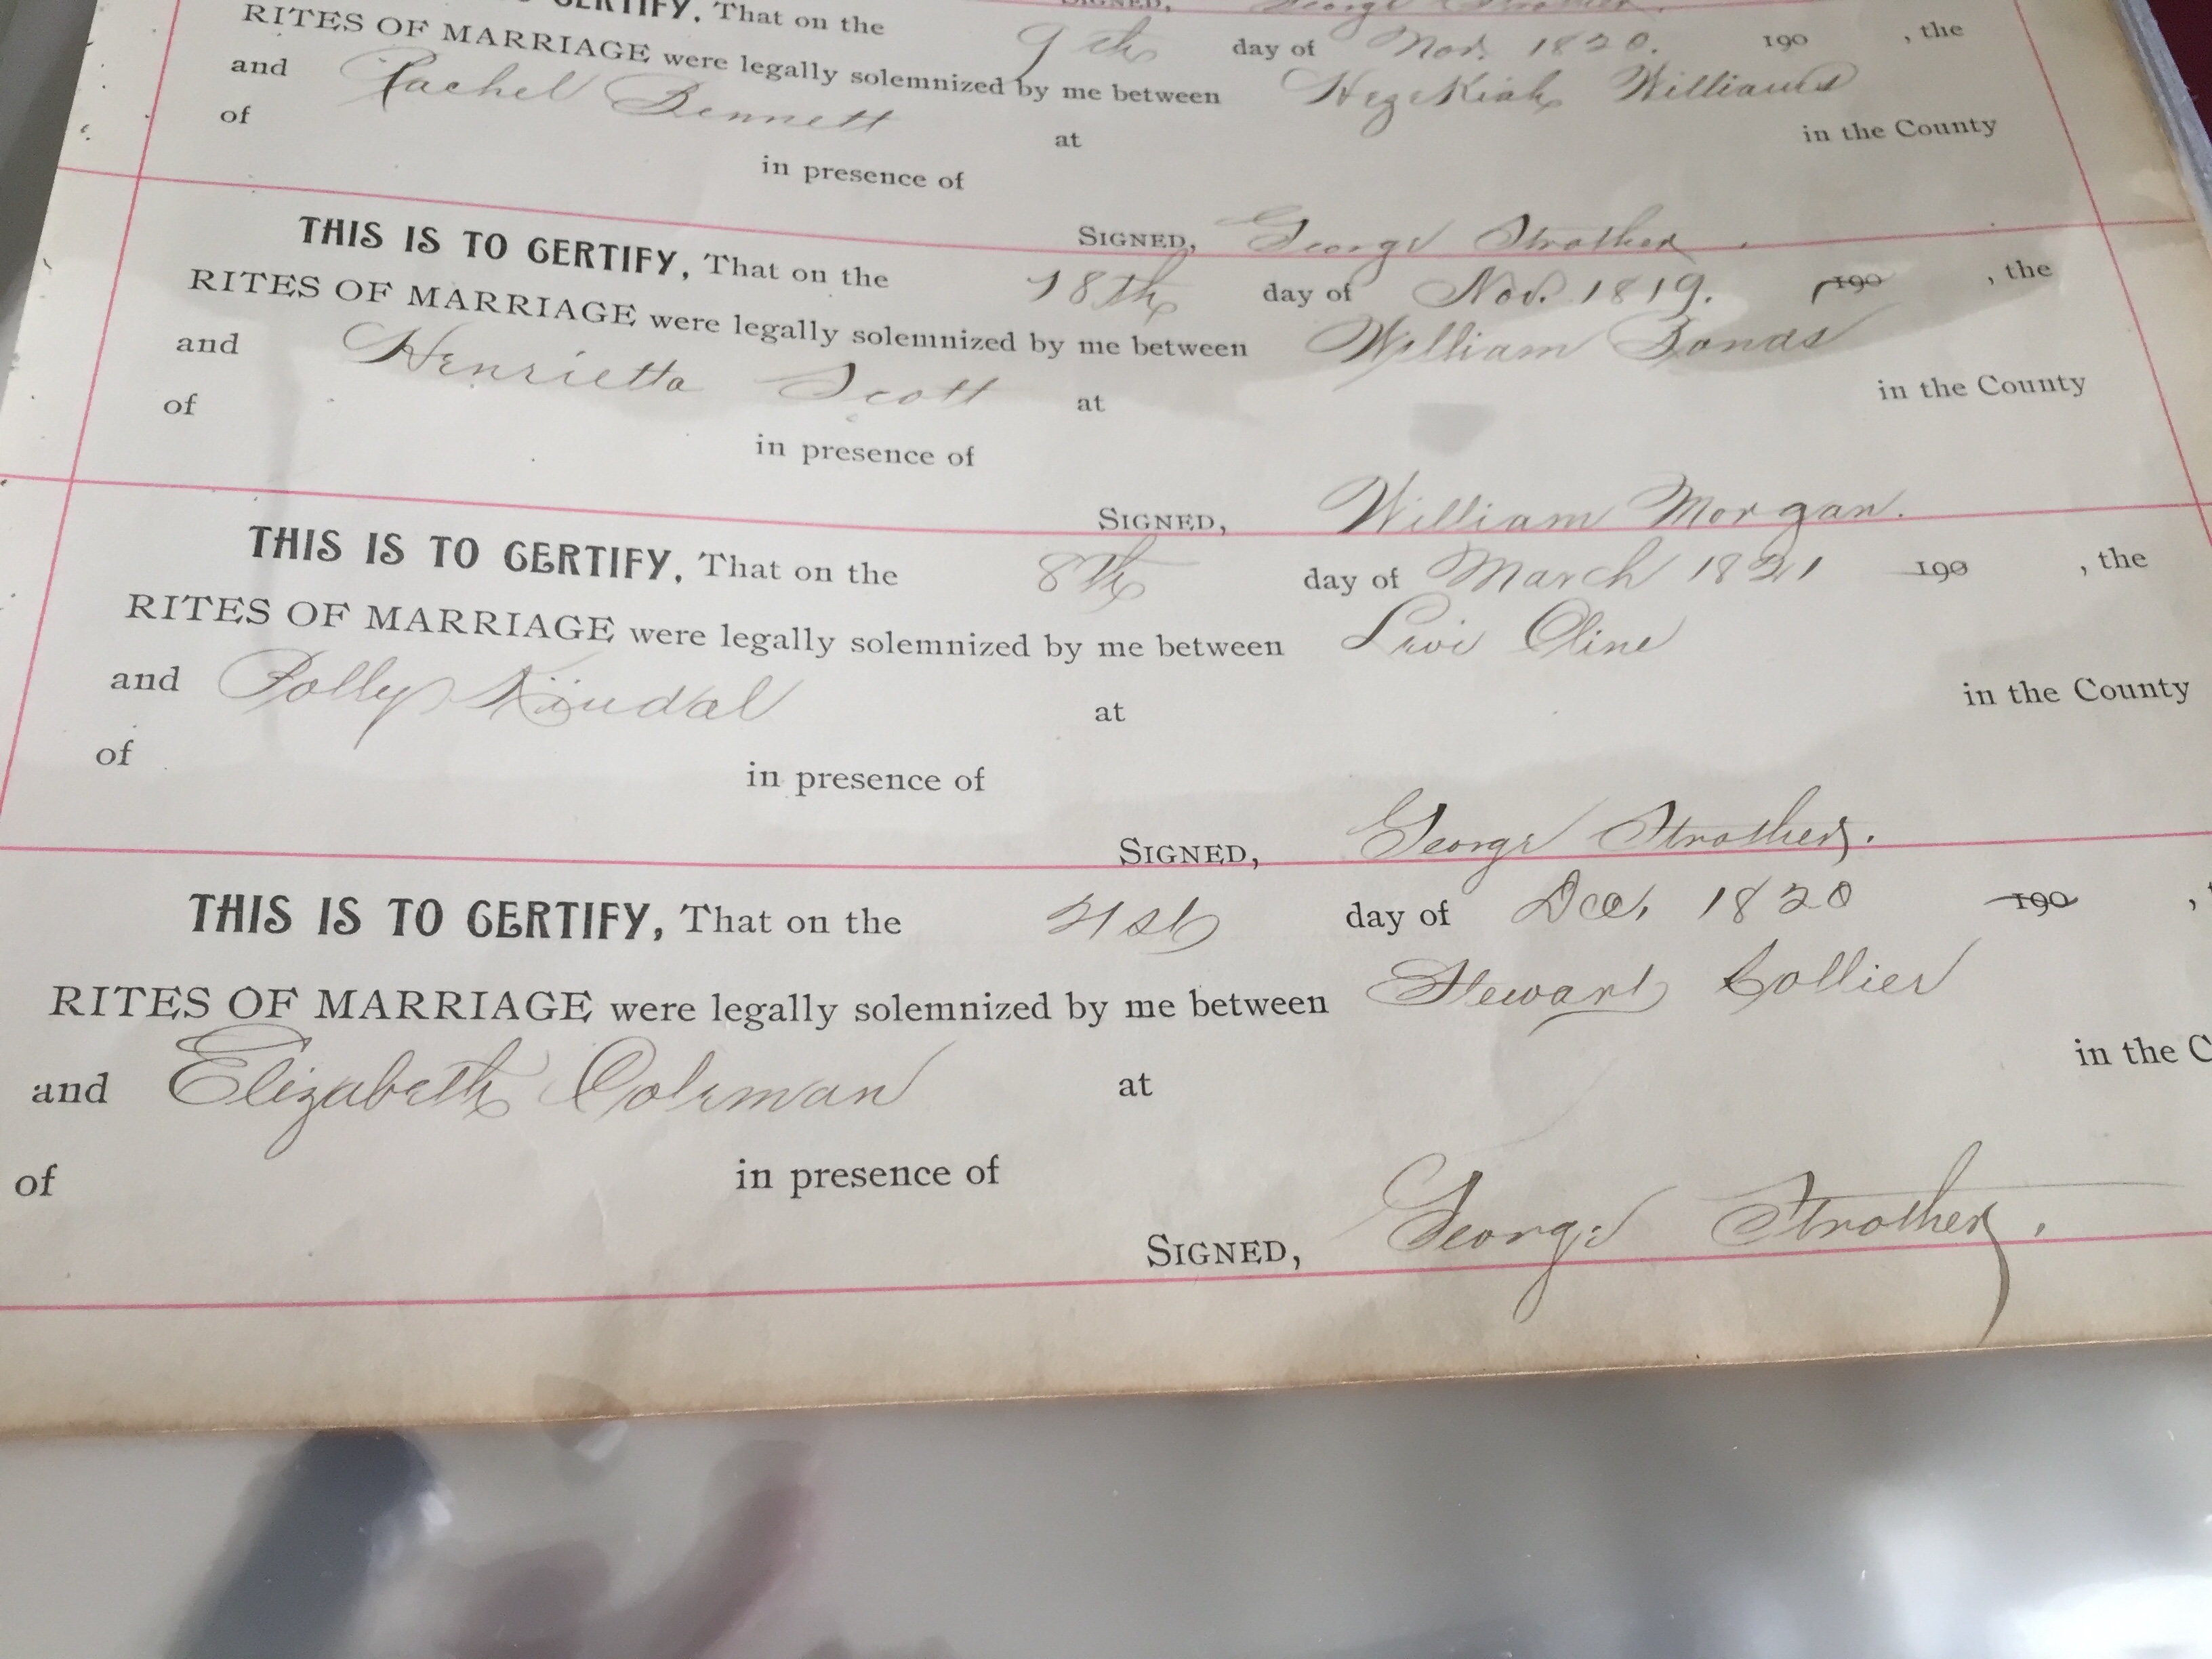 SIGNED, George Strother.
CERTIFY, That on the 9th day of Nov. 1820. 190 , the
RITES OF MARRIAGE were legally solemnized by me between Hezekiah Williams
and Rachel Bennett at in the County
of in presence of
SIGNED, George Strother.
THIS IS TO CERTIFY, That on the 18th day of Nov. 1819. 190 , the
RITES OF MARRIAGE were legally solemnized by me between William
and Henrietta Scott at in the County
of in presence of
SIGNED, William Morgan.
THIS IS TO CERTIFY, That on the 8th day of March 1821 190 , the
RITES OF MARRIAGE were legally solemnized by me between Levi Cline
and Polly at in the County
of in presence of
SIGNED, George Strother.
THIS IS TO CERTIFY, That on the 21st day of Dec. 1820 190 ,
RITES OF MARRIAGE were legally solemnized by me between Stewart Collier
and Elizabeth Coleman at in the C
of in presence of
SIGNED, George Strother.